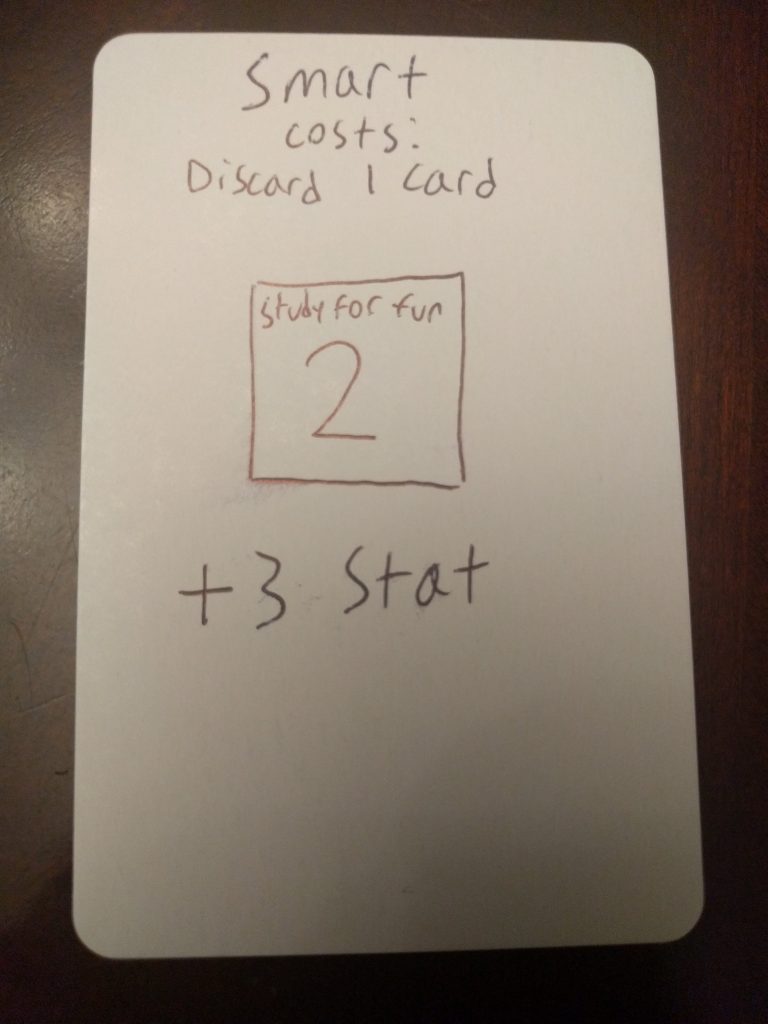 Smart
costs:
Discard 1 card
study for fun
2
+3 Stat